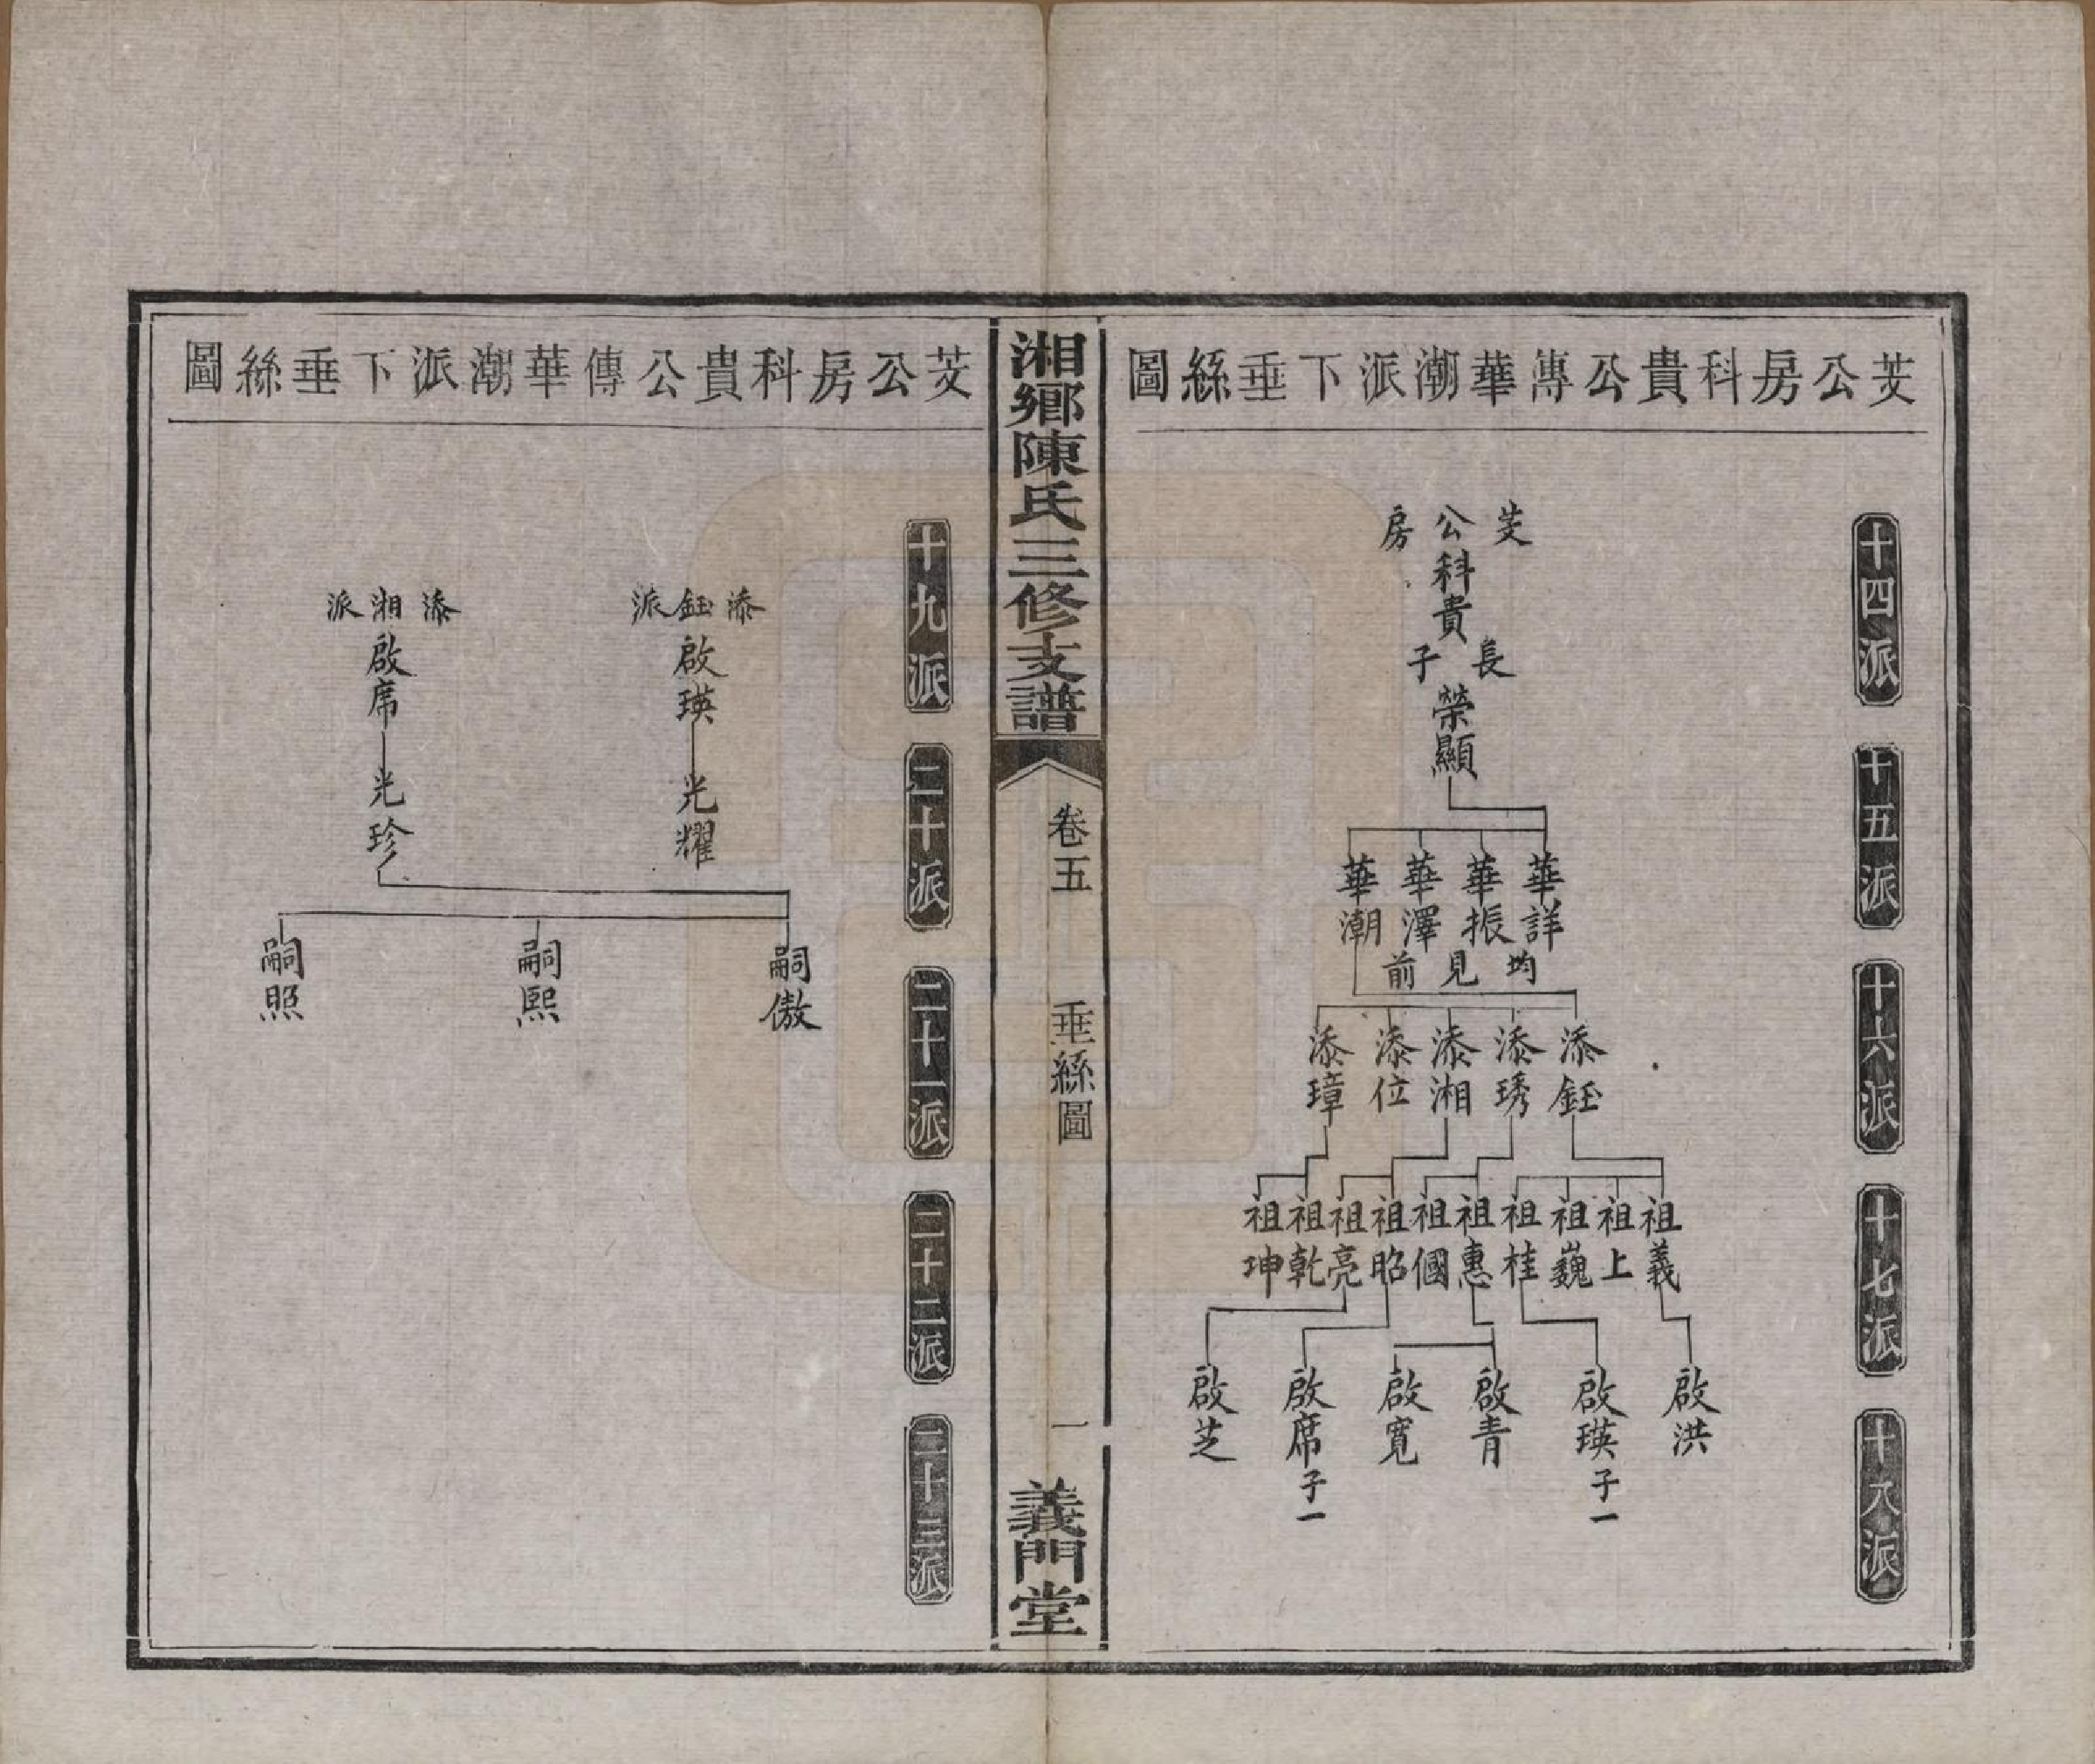 芠公房科貴公傳華潮派下垂絲圖
十四派
十五派
十六派
十七派
十八派
芠公房
科貴
長子
榮顯
華詳
華振
華澤
華潮
均見前
添鈺
添琇
添湘
添位
添璋
祖義
祖上
祖巍
祖桂
祖惠
祖國
祖昭
祖亮
祖乾
祖坤
啟洪
啟瑛子一
啟青
啟寬
啟席子一
啟芝
湘鄉陳氏三修支譜
卷五
垂絲圖
一
義門堂
芠公房科貴公傳華潮派下垂絲圖
十九派
二十派
二十一派
二十二派
二十三派
添鈺派
啟瑛
光耀
添湘派
啟席
光珍
嗣傲
嗣熙
嗣照